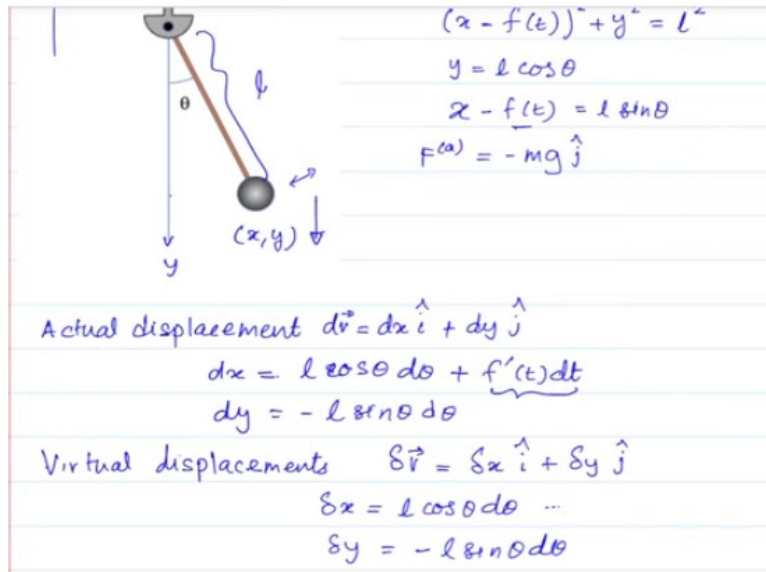 (x - f(t))² + y² = l²
y = l cosθ
x - f(t) = l sinθ
F⁽ᵃ⁾ = - mg ĵ
θ
l
(x, y)
y
Actual displacement dr⃗ = dx î + dy ĵ
dx = l cosθ dθ + f'(t)dt
dy = - l sinθ dθ
Virtual displacements δr⃗ = δx î + δy ĵ
δx = l cosθ dθ ...
δy = - l sinθ dθ